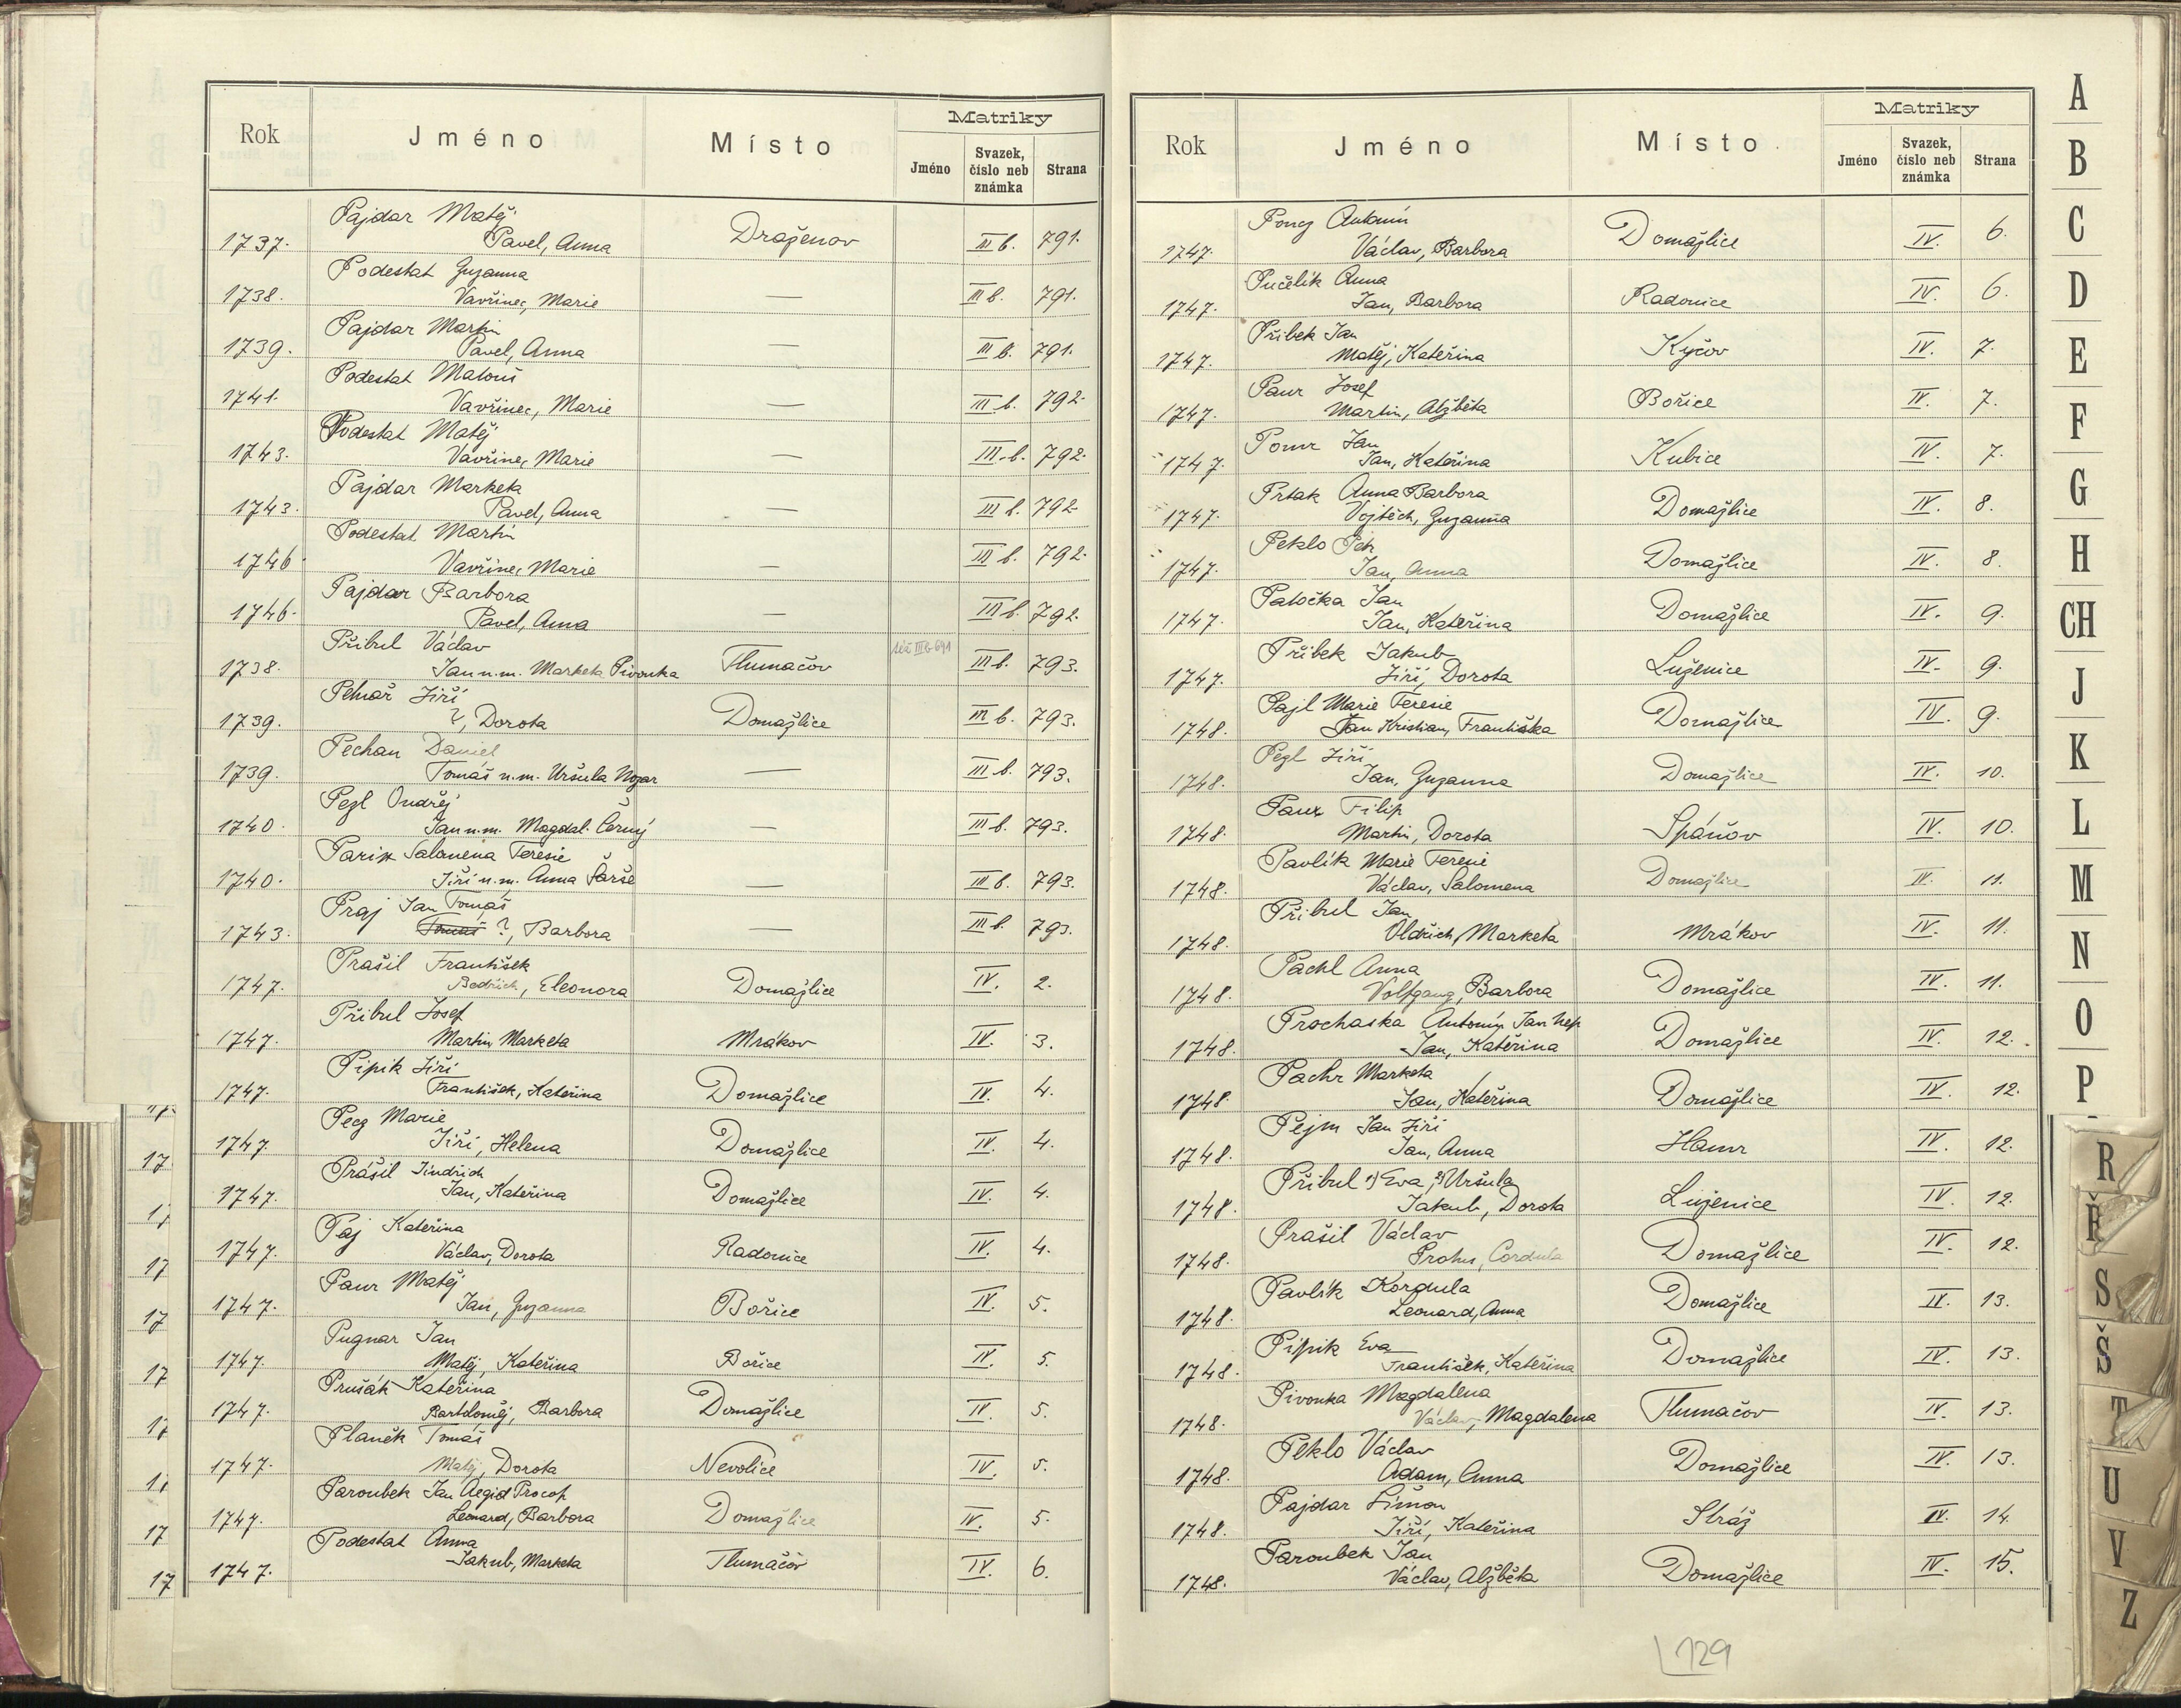 Matriky
Rok Jméno Místo Jméno Svazek, číslo neb známka Strana
Pajdar Matěj
1737. Pavel, Anna Draženov III b. 791.
Podestat Zuzanna
1738. Vavřinec, Marie — III b. 791.
Pajdar Martin
1739. Pavel, Anna — III b. 791.
Podestat Matouš
1741. Vavřinec, Marie — III b. 792.
Podestat Matěj
1743. Vavřinec, Marie — III b. 792.
Pajdar Marketa
1743. Pavel, Anna — III b. 792.
Podestat Martin
1746 Vavřinec, Marie — III b. 792.
Pajdar Barbora
1746. Pavel, Anna — III b. 792.
Přibul Václav
1738. Jan n.m. Marketa Pivonka Tlumačov III b. 793.
Jiří
1739. ?, Dorota Domažlice III b. 793.
Pechan Daniel
1739. Tomáš n.m. Uršula — III b. 793.
Pezl Ondřej
1740. Jan n.m. Magdal. Černý — III b. 793.
Salomena Teresie
1740. Jiří n.m. Anna — III b. 793.
Praj Jan Tomáš
1743. Tomáš ?, Barbora — III b. 793.
Prašil František
1747. Bedřich, Eleonora Domažlice IV. 2.
Přibul Josef
1747. Martin, Marketa Mrákov IV. 3.
Pipik Jiří
1747. František, Kateřina Domažlice IV. 4.
Pecz Marie
1747. Jiří, Helena Domažlice IV. 4.
Prášil Jindřich
1747. Jan, Kateřina Domažlice IV. 4.
Paj Kateřina
1747. Václav, Dorota Radonice IV. 4.
Paur Matěj
1747. Jan, Zuzanna Bořice IV. 5.
Pugnar Jan
1747. Matěj, Kateřina Bořice IV. 5.
Prušák Kateřina
1747. Bartoloměj, Barbora Domažlice IV. 5.
Planěk Tomáš
1747. Matěj, Dorota Nevolice IV. 5.
Paroubek Jan Aegid Procop
1747. Leonard, Barbora Domažlice IV. 5.
Podestat Anna
1747. Jakub, Marketa Tlumačov IV. 6.
Matriky
Rok Jméno Místo Jméno Svazek, číslo neb známka Strana
Poncz Antonín
1747. Václav, Barbora Domažlice IV. 6.
Pučelík Anna
1747. Jan, Barbora Radonice IV. 6.
Přibek Jan
1747. Matěj, Kateřina Kyčov IV. 7.
Paur Josef
1747. Martin, Alžběta Bořice IV. 7.
Jan
1747. Jan, Kateřina Kubice IV. 7.
Prtak Anna Barbora
1747. Vojtěch, Zuzanna Domažlice IV. 8.
Peklo Petr
1747. Jan, Anna Domažlice IV. 8.
Patočka Jan
1747. Jan, Kateřina Domažlice IV. 9.
Přibek Jakub
1747. Jiří, Dorota Luženice IV. 9.
Pajl Marie Teresie
1748. Jan Kristian, Františka Domažlice IV. 9.
Pegl Jiří
1748. Jan, Zuzanna Domažlice IV. 10.
Paur Filip
1748. Martin, Dorota Spáňov IV. 10.
Pavlík Marie Teresie
1748. Václav, Salomena Domažlice IV. 11.
Přibul Jan
1748. Oldřich, Marketa Mrákov IV. 11.
Pachl Anna
1748. Volfgang, Barbora Domažlice IV. 11.
Prochaska Antonín Jan Nep
1748. Jan, Kateřina Domažlice IV. 12.
Pachr Marketa
1748. Jan, Kateřina Domažlice IV. 12.
Pejm Jan Jiří
1748. Jan, Anna Hamr IV. 12.
Přibul 1) Eva, 2) Uršula
1748. Jakub, Dorota Luženice IV. 12.
Prašil Václav
1748. Cordula Domažlice IV. 12.
Pavlík Kordula
1748. Leonard, Anna Domažlice IV. 13.
Pipik Eva
1748. František, Kateřina Domažlice IV. 13.
Pivonka Magdalena
1748. Václav, Magdalena Tlumačov IV. 13.
Peklo Václav
1748. Adam, Anna Domažlice IV. 13.
Pajdar Šimon
1748. Jiří, Kateřina Stráž IV. 14.
Paroubek Jan
1748. Václav, Alžběta Domažlice IV. 15.
129
A
B
C
D
E
F
G
H
CH
J
K
L
M
N
O
P
R
Ř
S
Š
T
U
V
Z